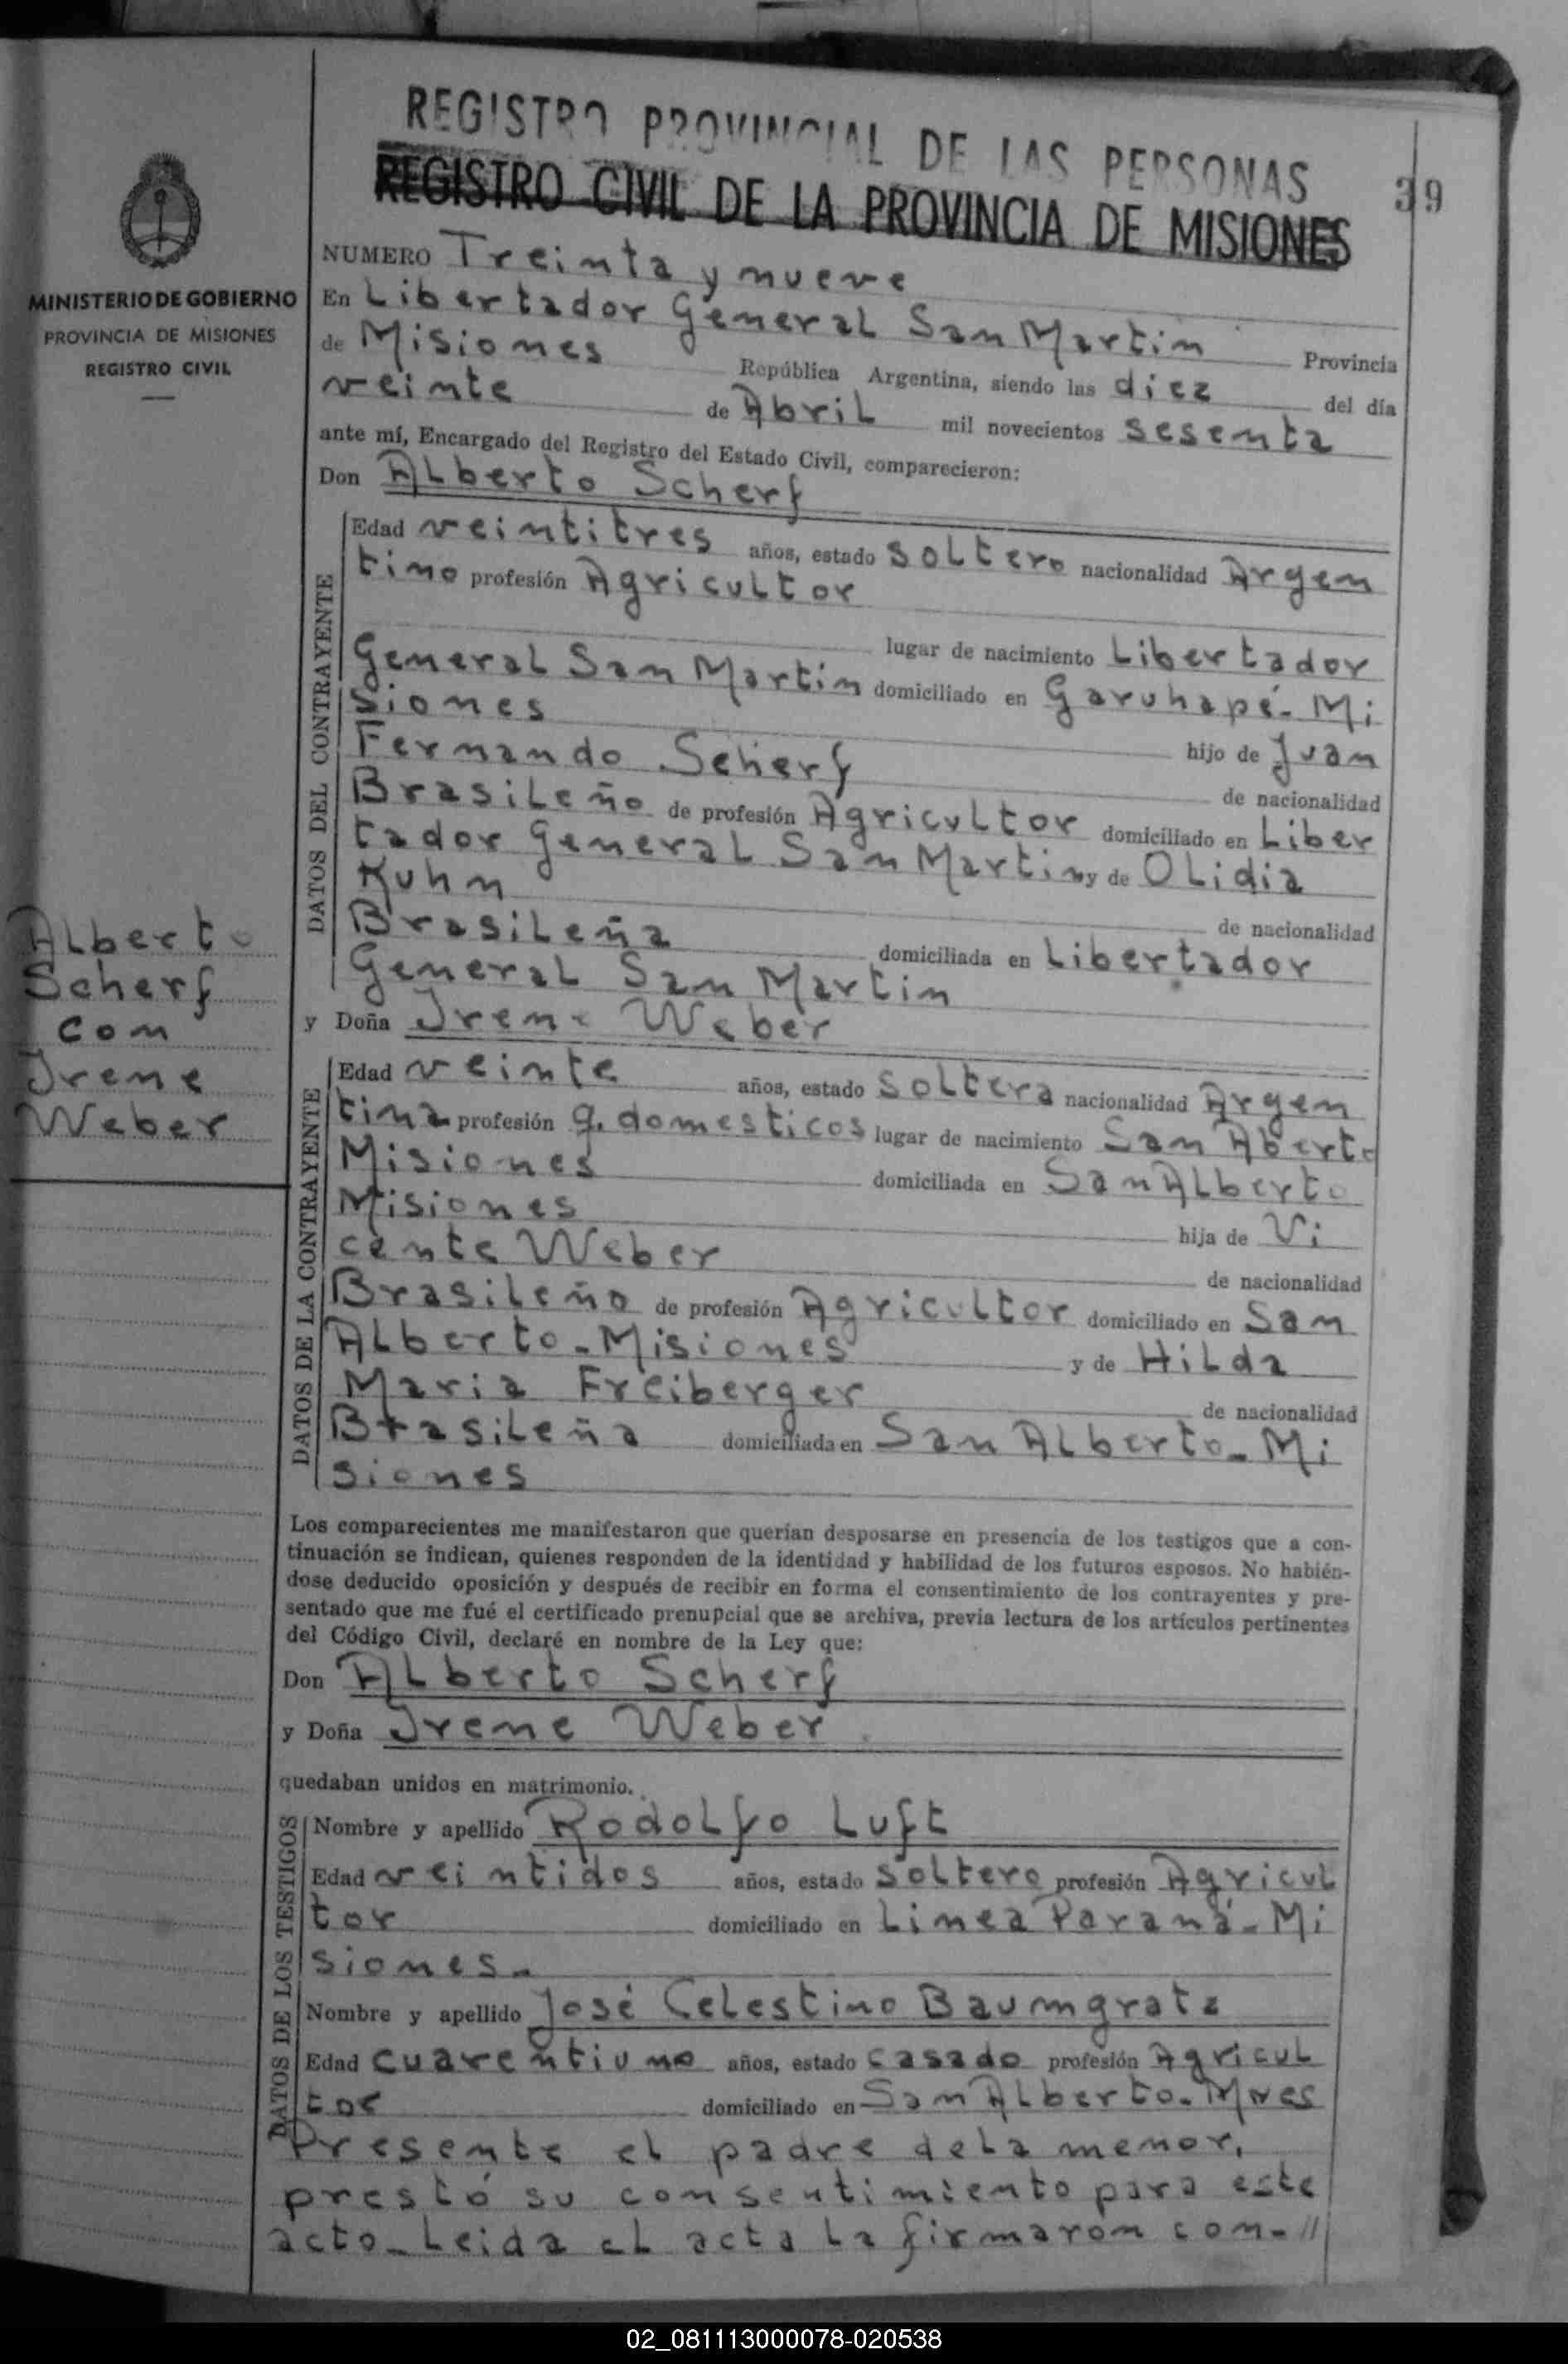 REGISTRO PROVINCIAL DE LAS PERSONAS
REGISTRO CIVIL DE LA PROVINCIA DE MISIONES
39
MINISTERIO DE GOBIERNO
PROVINCIA DE MISIONES
REGISTRO CIVIL
Alberto
Scherf
con
Irene
Weber
NUMERO Treinta y nueve
En Libertador General San Martin Provincia
de Misiones República Argentina, siendo las diez del día
veinte de Abril mil novecientos sesenta
ante mí, Encargado del Registro del Estado Civil, comparecieron:
Don Alberto Scherf
DATOS DEL CONTRAYENTE
Edad veintitres años, estado soltero nacionalidad Argen
tino profesión Agricultor
lugar de nacimiento Libertador
General San Martin domiciliado en Garuhapé-Mi
siones hijo de Juan
Fernando Scherf de nacionalidad
Brasileño de profesión Agricultor domiciliado en Liber
tador General San Martin y de Olidia
Kuhn de nacionalidad
Brasileña domiciliada en Libertador
General San Martin
y Doña Irene Weber
DATOS DE LA CONTRAYENTE
Edad veinte años, estado soltera nacionalidad Argen
tina profesión q. domesticos lugar de nacimiento San Aberto
Misiones domiciliada en San Alberto
Misiones hija de Vi
cente Weber de nacionalidad
Brasileño de profesión Agricultor domiciliado en San
Alberto-Misiones y de Hilda
Maria Freiberger de nacionalidad
Brasileña domiciliada en San Alberto-Mi
siones
Los comparecientes me manifestaron que querían desposarse en presencia de los testigos que a con-
tinuación se indican, quienes responden de la identidad y habilidad de los futuros esposos. No habién-
dose deducido oposición y después de recibir en forma el consentimiento de los contrayentes y pre-
sentado que me fué el certificado prenupcial que se archiva, previa lectura de los artículos pertinentes
del Código Civil, declaré en nombre de la Ley que:
Don Alberto Scherf
y Doña Irene Weber
quedaban unidos en matrimonio.
DATOS DE LOS TESTIGOS
Nombre y apellido Rodolfo Luft
Edad veintidos años, estado soltero profesión Agricul
tor domiciliado en Linea Paraná-Mi
siones-
Nombre y apellido José Celestino Baumgratz
Edad cuarentiuno años, estado casado profesión Agricul
tor domiciliado en San Alberto-Mnes
Presente el padre de la menor,
prestó su consentimiento para este
acto-Leida el acta la firmaron con-//
02_081113000078-020538